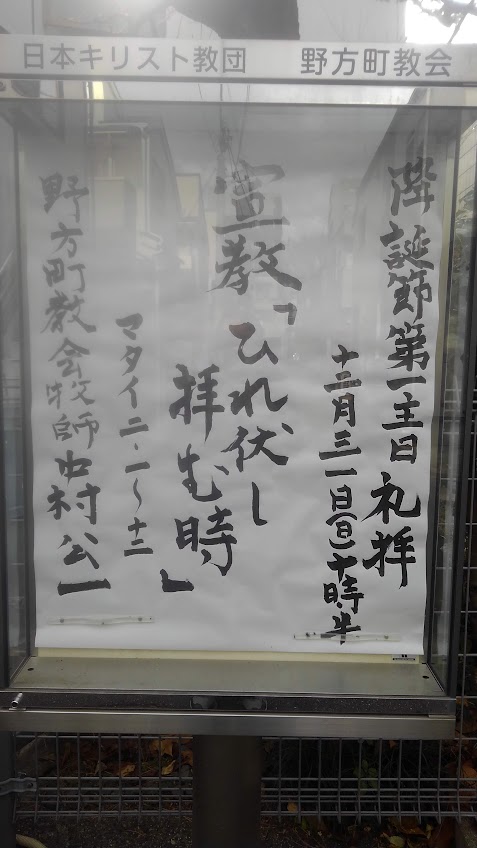 日本キリスト教団 野方町教会
降誕節第一主日礼拝
十二月三一日(日)十時半
宣教「ひれ伏し
拝む時」
マタイ二・一〜十二
野方町教会牧師中村公一